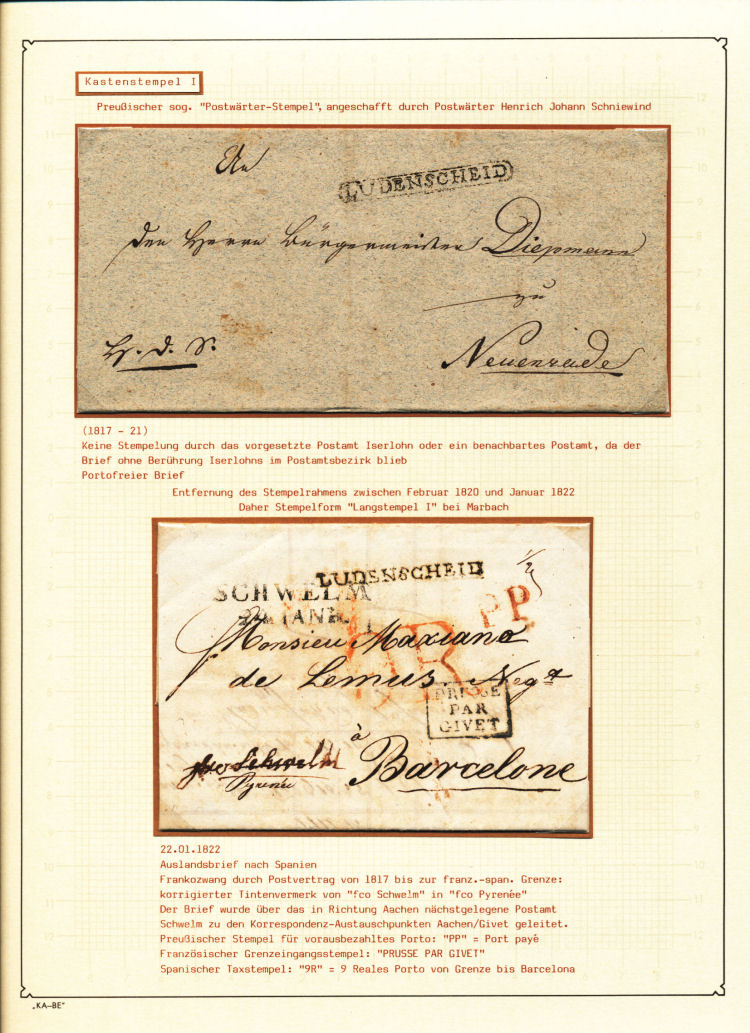 Kastenstempel I
Preußischer sog. "Postwärter-Stempel", angeschafft durch Postwärter Henrich Johann Schniewind
An
LUDENSCHEID
den Herrn Bürgermeister Diepmann
zu
H. d. S.
Neuenrade
(1817 - 21)
Keine Stempelung durch das vorgesetzte Postamt Iserlohn oder ein benachbartes Postamt, da der
Brief ohne Berührung Iserlohns im Postamtsbezirk blieb
Portofreier Brief
Entfernung des Stempelrahmens zwischen Februar 1820 und Januar 1822
Daher Stempelform "Langstempel I" bei Marbach
LUDENSCHEID
SCHWELM
22 IANR.
PP
9R
Monsieur Maxiano
de Lemus Negt
PRUSSE
PAR
GIVET
à
fco Schwelm
Barcelone
Pyrenée
22.01.1822
Auslandsbrief nach Spanien
Frankozwang durch Postvertrag von 1817 bis zur franz.-span. Grenze:
korrigierter Tintenvermerk von "fco Schwelm" in "fco Pyrenée"
Der Brief wurde über das in Richtung Aachen nächstgelegene Postamt
Schwelm zu den Korrespondenz-Austauschpunkten Aachen/Givet geleitet.
Preußischer Stempel für vorausbezahltes Porto: "PP" = Port payé
Französischer Grenzeingangsstempel: "PRUSSE PAR GIVET"
Spanischer Taxstempel: "9R" = 9 Reales Porto von Grenze bis Barcelona
„KA–BE"